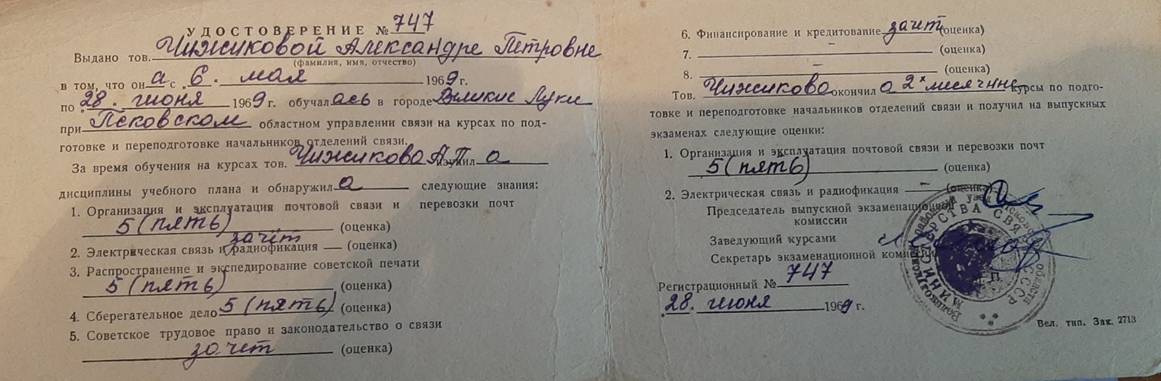 УДОСТОВЕРЕНИЕ № 747
Выдано тов. Чижиковой Александре Петровне
(фамилия, имя, отчество)
в том, что он а с 6. мая 1969 г.
по 28. июня 1969 г. обучалась в городе Великие Луки
при Псковском областном управлении связи на курсах по под-
готовке и переподготовке начальников отделений связи.
За время обучения на курсах тов. Чижикова А.П. а
дисциплины учебного плана и обнаружил а следующие знания:
1. Организация и эксплуатация почтовой связи и перевозки почт
5 (пять) (оценка)
2. Электрическая связь и радиофикация зачёт — (оценка)
3. Распространение и экспедирование советской печати
5 (пять) (оценка)
4. Сберегательное дело 5 (пять) (оценка)
5. Советское трудовое право и законодательство о связи
зачет (оценка)
6. Финансирование и кредитование зачет (оценка)
7. – (оценка)
8. – (оценка)
Тов. Чижикова окончил а 2х месячные курсы по подго-
товке и переподготовке начальников отделений связи и получил на выпускных
экзаменах следующие оценки:
1. Организация и эксплуатация почтовой связи и перевозки почт
5 (пять) (оценка)
2. Электрическая связь и радиофикация – (оценка)
Председатель выпускной экзаменационной
комиссии
Заведующий курсами
Секретарь экзаменационной
Регистрационный № 747
28. июня 1969 г.
МИНИСТЕРСТВА СВЯЗИ СССР
Вел. тип. Зак. 2713